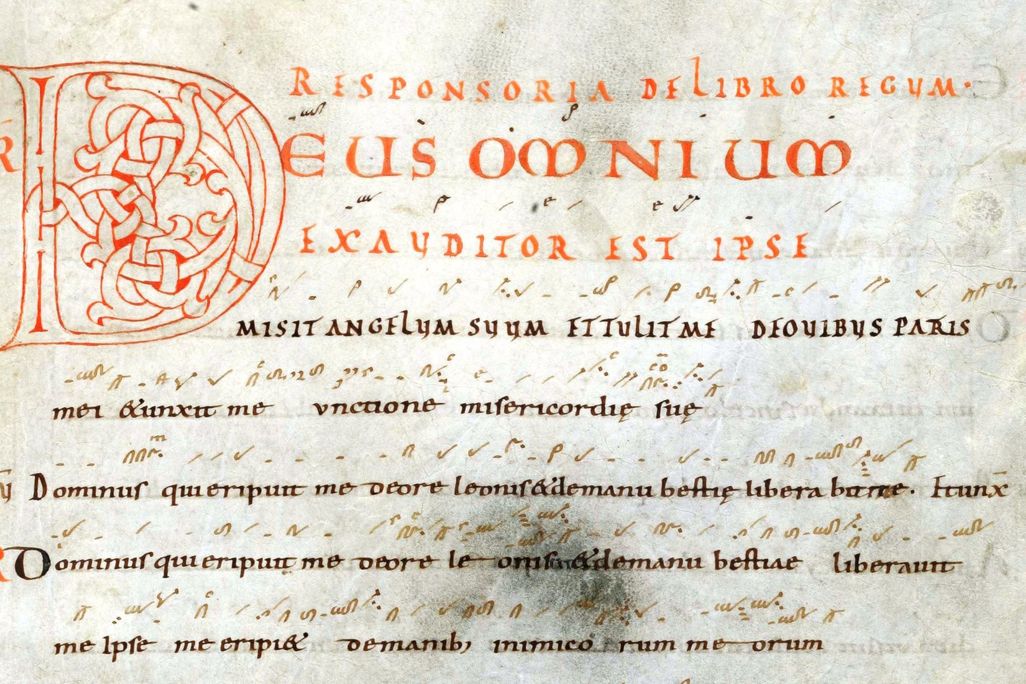 RESPONSORIA DE LIBRO REGUM·
R̄ DEUS OMNIUM
EXAUDITOR EST IPSE
MISIT ANGELUM SUUM ET TULIT ME DE OUIBUS PATRIS
mei &unxit me unctione misericordię suę
Dominus qui eripuit me de ore leonis &de manu bestię libera bit me. Et unx̄
R Dominus qui eripuit me de ore le onis &de manu bestiae liberauit
me Ipse me eripi& de manib; inimico rum me orum